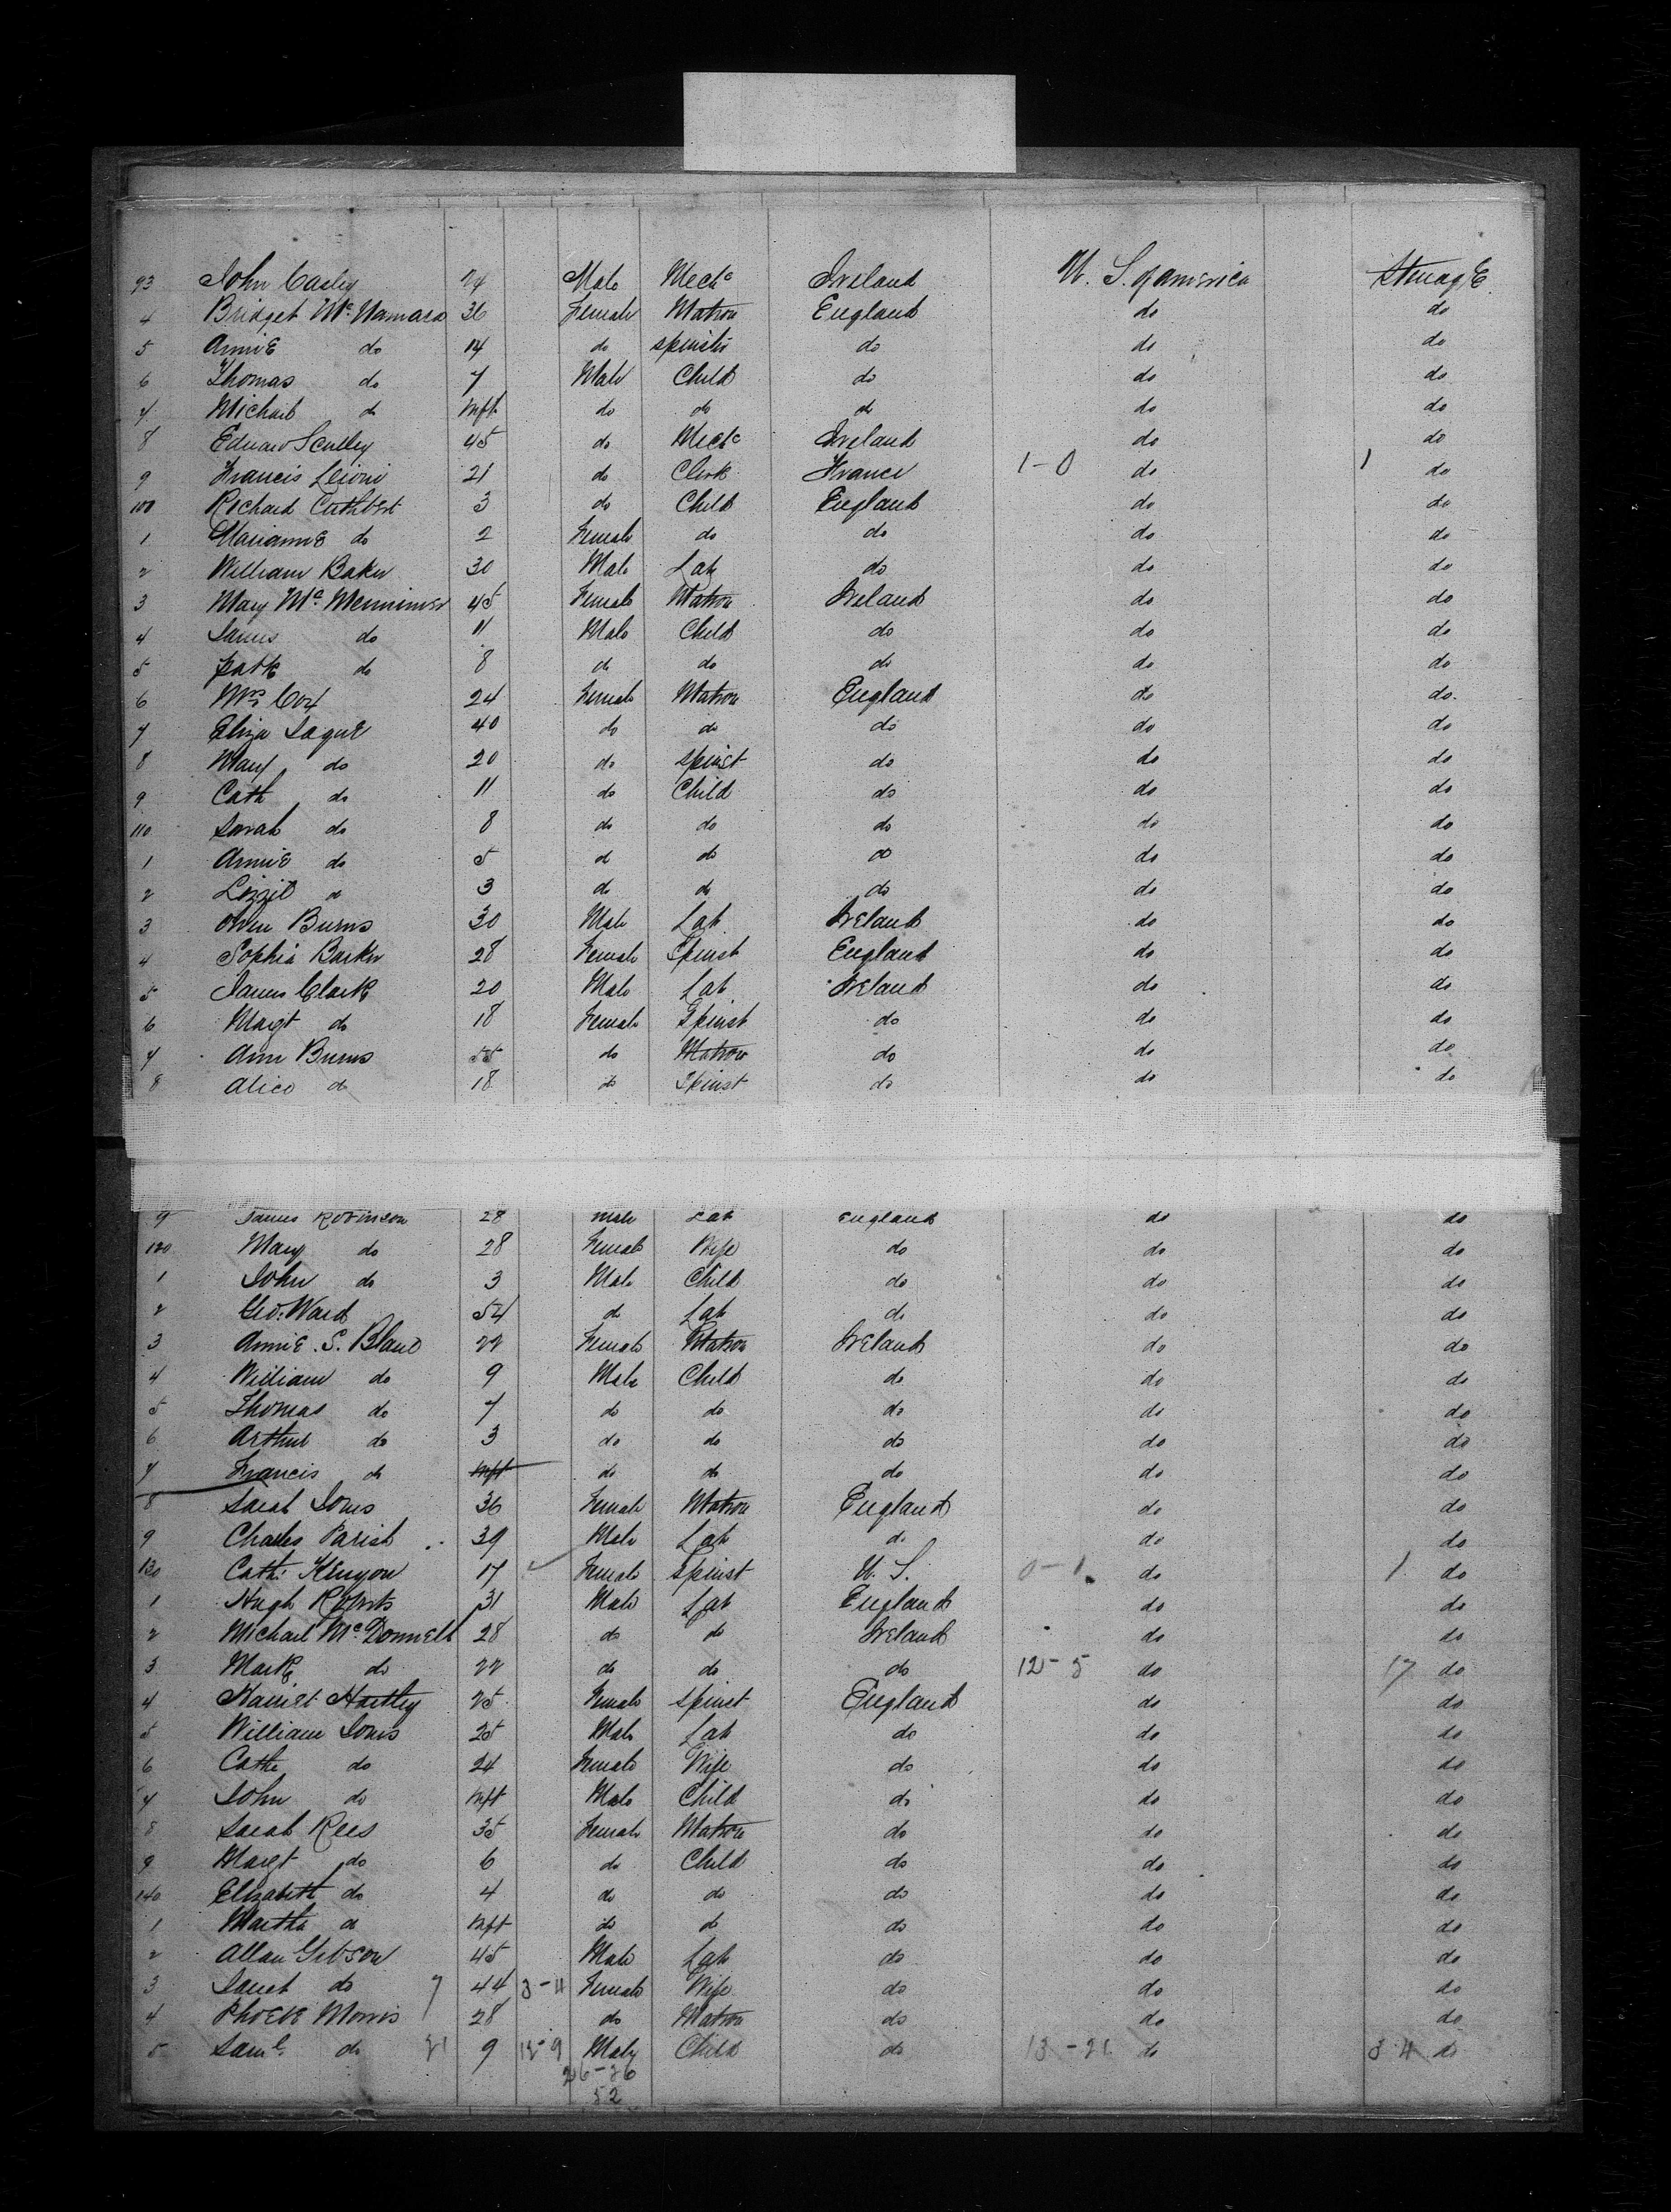 93 John Casley 24 Male Mechc Ireland U. S. of America Steerage
4 Bridget McNamara 36 Female Matron England do do
5 Annie do 14 do Spinster do do do
6 Thomas do 7 Male Child do do do
7 Michael do Inft do do do do do
8 Edward Sculley 45 do Mechc Ireland do do
9 Francis 21 do Clerk France 1-0 do 1 do
100 Richard Cuthbert 3 do Child England do do
1 Marianne do 2 Female do do do do
2 William Baker 30 Male Lab do do do
3 Mary Mc 45 Female Matron Ireland do do
4 James do 11 Male Child do do do
5 Patk do 8 do do do do do
6 Mrs Cox 24 Female Matron England do do
7 Eliza Sague 40 do do do do do
8 Mary do 20 do Spinst do do do
9 Cath do 11 do Child do do do
110 Sarah do 8 do do do do do
1 Annie do 5 do do do do do
2 Lizzie do 3 do do do do do
3 Owen Burns 30 Male Lab Ireland do do
4 Sophia Barker 28 Female Spinst England do do
5 James Clark 20 Male Lab Ireland do do
6 Margt do 18 Female Spinst do do do
7 Ann Burns 55 do Matron do do do
8 Alice do 18 do Spinst do do do
9 James Robinson 28 Male Lab England do do
120 Mary do 28 Female Wife do do do
1 John do 3 Male Child do do do
2 Geo: Ward 54 do Lab do do do
3 Annie. S. Bland 22 Female Matron Ireland do do
4 William do 9 Male Child do do do
5 Thomas do 7 do do do do do
6 Arthur do 3 do do do do do
7 Francis do Inft do do do do do
8 Sarah Jones 36 Female Matron England do do
9 Charles Parish 39 Male Lab do do do
130 Cath: Kenyon 17 Female Spinst U. S. 0-1 do 1 do
1 Hugh Roberts 31 Male Lab England do do
2 Michael McDonnell 28 do do Ireland do do
3 Mark do 22 do do do 12-5 do 17 do
4 Harriet Hartley 25 Female Spinst England do do
5 William Jones 25 Male Lab do do do
6 Cathe do 24 Female Wife do do do
7 John do Inft Male Child do do do
8 Sarah Rees 35 Female Matron do do do
9 Margt do 6 do Child do do do
140 Elizabeth do 4 do do do do do
1 Martha do Inft do do do do do
2 Allan Gibson 45 Male Lab do do do
3 Janet do 7 44 3-4 Female Wife do do do
4 Phoebe Morris 28 do Matron do do do
5 Saml do 21 9 12-9 Male Child do 13-21 do 34 do
26-26
52